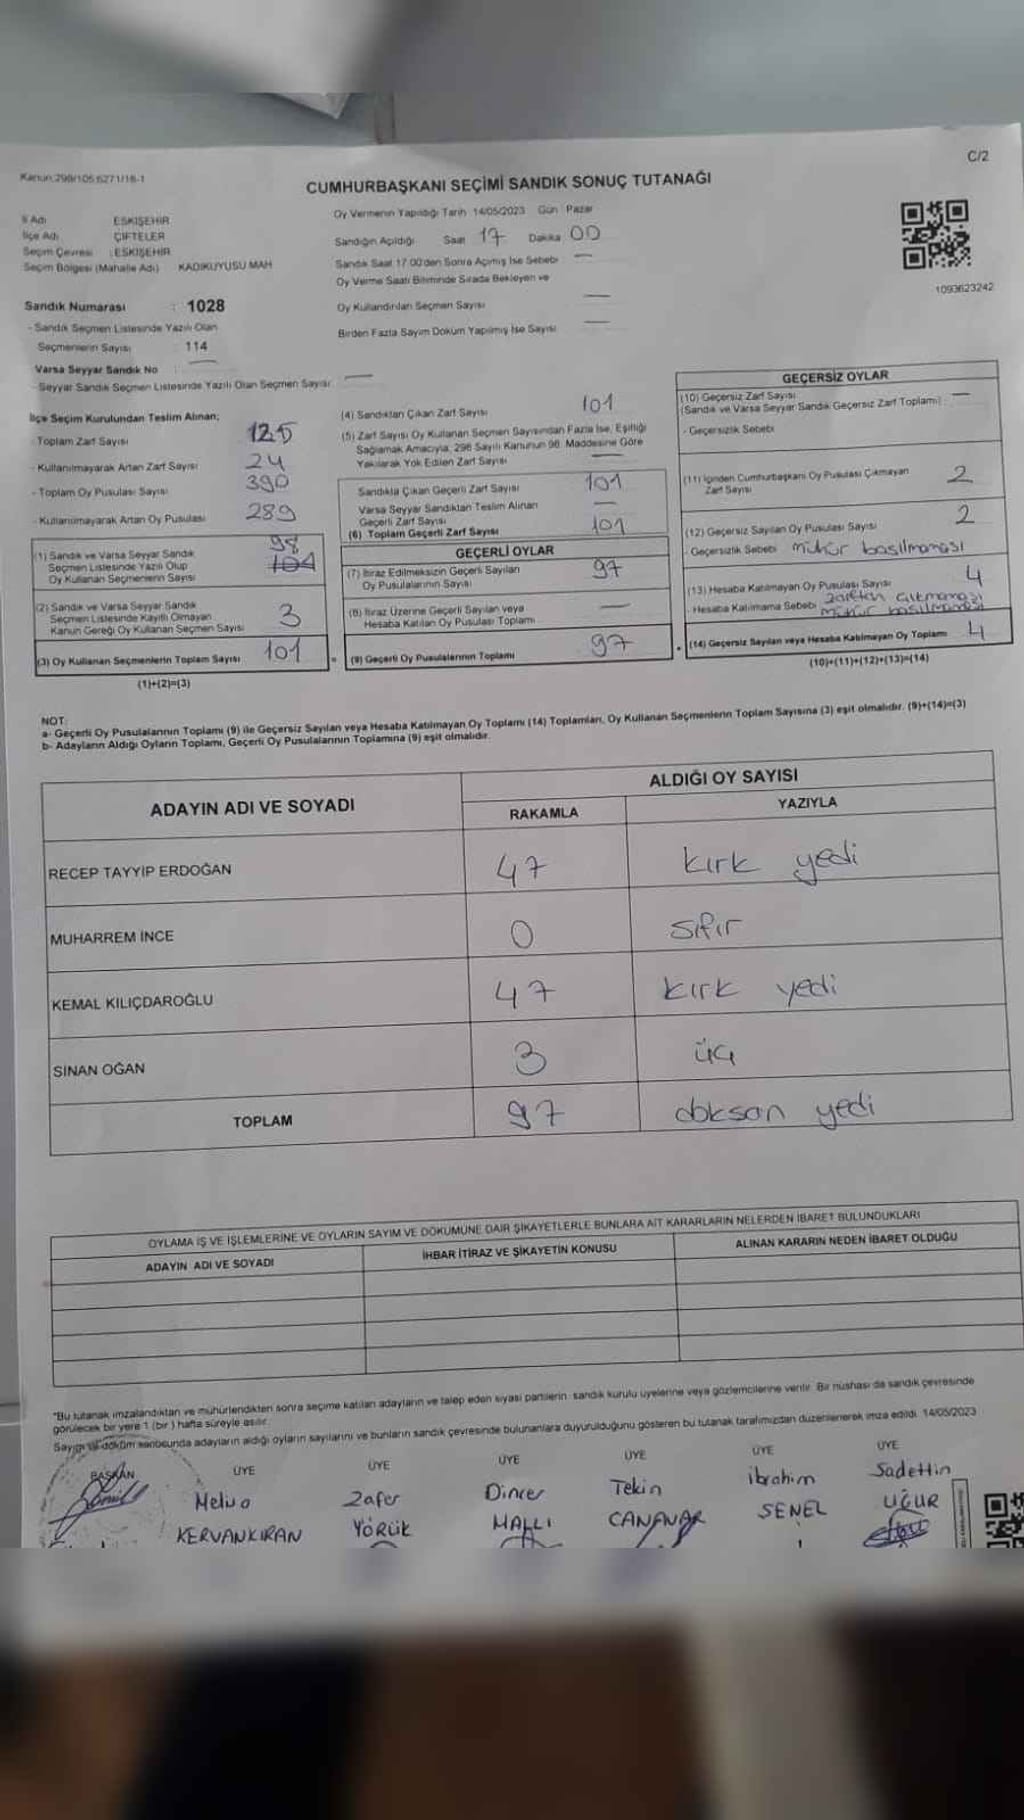 C/2
Kanun:298/105 6271/18-1
CUMHURBAŞKANI SEÇİMİ SANDIK SONUÇ TUTANAĞI
İl Adı ESKİŞEHİR
İlçe Adı ÇİFTELER
Seçim Çevresi : ESKİŞEHİR
Seçim Bölgesi (Mahalle Adı) KADIKUYUSU MAH
Oy Vermenin Yapıldığı Tarih 14/05/2023 Gün Pazar
Sandığın Açıldığı Saat 17 Dakika 00
Sandık Saat 17.00'den Sonra Açımış İse Sebebi —
Oy Verme Saati Bitiminde Sırada Bekleyen ve
Oy Kullandırılan Seçmen Sayısı —
Birden Fazla Sayım Döküm Yapılmış İse Sayısı —
1093623242
Sandık Numarası : 1028
- Sandık Seçmen Listesinde Yazılı Olan
Seçmenlerin Sayısı : 114
Varsa Seyyar Sandık No : —
- Seyyar Sandık Seçmen Listesinde Yazılı Olan Seçmen Sayısı —
İlçe Seçim Kurulundan Teslim Alınan;
- Toplam Zarf Sayısı 125
- Kullanılmayarak Artan Zarf Sayısı 24
- Toplam Oy Pusulası Sayısı 390
- Kullanılmayarak Artan Oy Pusulası 289
(1) Sandık ve Varsa Seyyar Sandık
Seçmen Listesinde Yazılı Olup
Oy Kullanan Seçmenlerin Sayısı 98 101
(2) Sandık ve Varsa Seyyar Sandık
Seçmen Listesinde Kayıtlı Olmayan
Kanun Gereği Oy Kullanan Seçmen Sayısı 3
(3) Oy Kullanan Seçmenlerin Toplam Sayısı 101
(1)+(2)=(3)
(4) Sandıktan Çıkan Zarf Sayısı 101
(5) Zarf Sayısı Oy Kullanan Seçmen Sayısından Fazla İse, Eşitliği
Sağlamak Amacıyla, 298 Sayılı Kanunun 98. Maddesine Göre
Yakılarak Yok Edilen Zarf Sayısı —
Sandıkta Çıkan Geçerli Zarf Sayısı 101
Varsa Seyyar Sandıktan Teslim Alınan
Geçerli Zarf Sayısı —
(6) Toplam Geçerli Zarf Sayısı 101
GEÇERLİ OYLAR
(7) İtiraz Edilmeksizin Geçerli Sayılan
Oy Pusulalarının Sayısı 97
(8) İtiraz Üzerine Geçerli Sayılan veya
Hesaba Katılan Oy Pusulası Toplamı —
= (9) Geçerli Oy Pusulalarının Toplamı 97
GEÇERSİZ OYLAR
(10) Geçersiz Zarf Sayısı
(Sandık ve Varsa Seyyar Sandık Geçersiz Zarf Toplamı) : —
- Geçersizlik Sebebi
(11) İçinden Cumhurbaşkanı Oy Pusulası Çıkmayan
Zarf Sayısı 2
(12) Geçersiz Sayılan Oy Pusulası Sayısı 2
- Geçersizlik Sebebi mühür basılmaması
(13) Hesaba Katılmayan Oy Pusulası Sayısı 4
- Hesaba Katılmama Sebebi zarftan çıkmaması
mühür basılmaması
(14) Geçersiz Sayılan veya Hesaba Katılmayan Oy Toplamı 4
(10)+(11)+(12)+(13)=(14)
NOT:
a- Geçerli Oy Pusulalarının Toplamı (9) ile Geçersiz Sayılan veya Hesaba Katılmayan Oy Toplamı (14) Toplamları, Oy Kullanan Seçmenlerin Toplam Sayısına (3) eşit olmalıdır. (9)+(14)=(3)
b- Adayların Aldığı Oyların Toplamı, Geçerli Oy Pusulalarının Toplamına (9) eşit olmalıdır.
ADAYIN ADI VE SOYADI
ALDIĞI OY SAYISI
RAKAMLA YAZIYLA
RECEP TAYYİP ERDOĞAN 47 kırk yedi
MUHARREM İNCE 0 sıfır
KEMAL KILIÇDAROĞLU 47 kırk yedi
SİNAN OĞAN 3 üç
TOPLAM 97 doksan yedi
OYLAMA İŞ VE İŞLEMLERİNE VE OYLARIN SAYIM VE DÖKÜMÜNE DAİR ŞİKAYETLERLE BUNLARA AİT KARARLARIN NELERDEN İBARET BULUNDUKLARI
ADAYIN ADI VE SOYADI İHBAR İTİRAZ VE ŞİKAYETİN KONUSU ALINAN KARARIN NEDEN İBARET OLDUĞU
"Bu tutanak imzalandıktan ve mühürlendikten sonra seçime katılan adayların ve talep eden siyasi partilerin sandık kurulu üyelerine veya gözlemcilerine verilir. Bir nüshası da sandık çevresinde
görülecek bir yere 1 (bir) hafta süreyle asılır.
Sayım ve döküm sonucunda adayların aldığı oyların sayılarını ve bunların sandık çevresinde bulunanlara duyurulduğunu gösteren bu tutanak tarafımızdan düzenlenerek imza edildi. 14/05/2023
BAŞKAN ÜYE ÜYE ÜYE ÜYE ÜYE ÜYE
Melisa Zafer Dincer Tekin ibrahim Sadettin
KERVANKIRAN YÖRÜK MALLI CANAVAR SENEL UĞUR